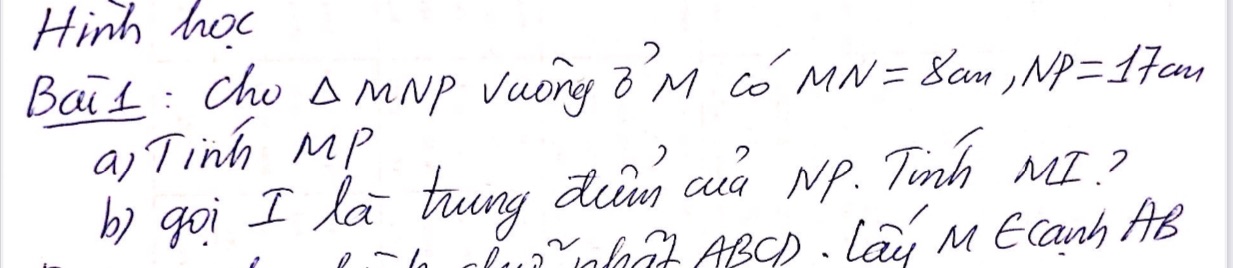 Hình học
Bài 1 : Cho Δ MNP vuông ở M có MN = 8cm, NP = 17cm
a) Tính MP
b) gọi I là trung điểm của NP. Tính MI?
nhật ABCD. Lấy M ∈ cạnh AB